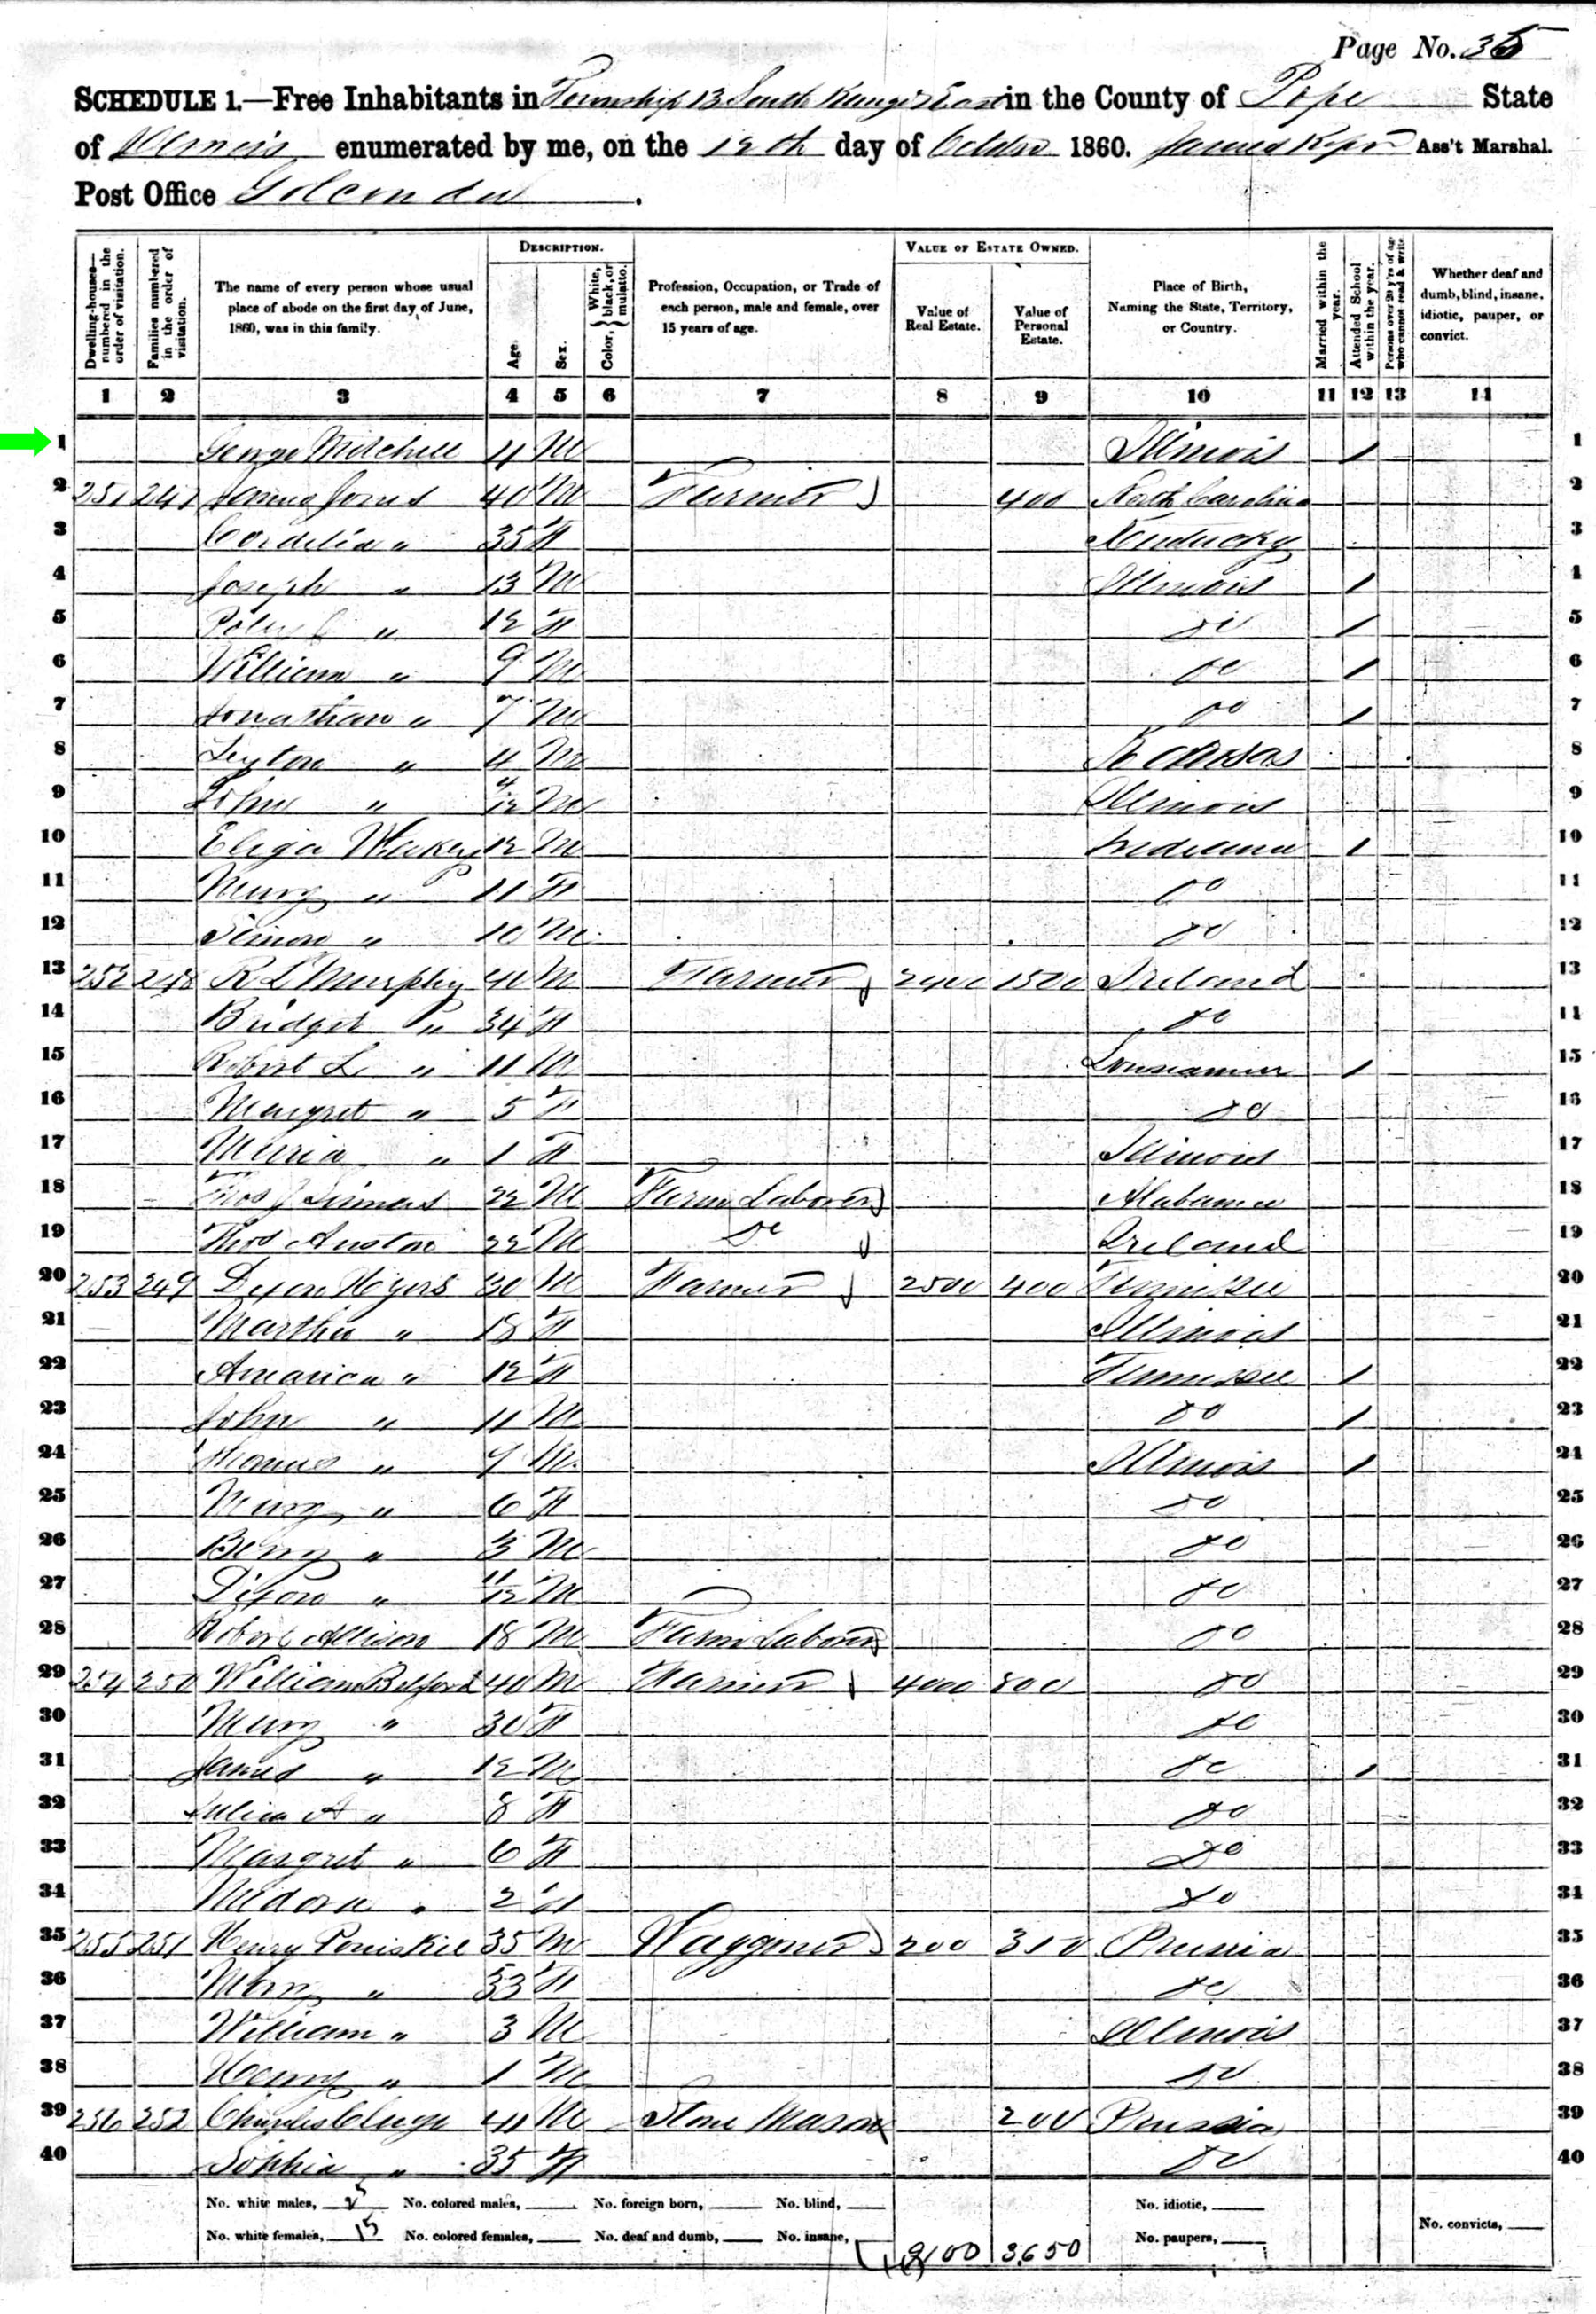 Page No. 35
SCHEDULE 1.—Free Inhabitants in Township 13 South Range 7 East in the County of Pope State
of Illinois enumerated by me, on the 12th day of October 1860. James Ass't Marshal.
Post Office Golconda.
Dwelling-houses—numbered in the order of visitation.
Families numbered in the order of visitation.
The name of every person whose usual place of abode on the first day of June, 1860, was in this family.
DESCRIPTION.
Age.
Sex.
Color, { White, black, or mulatto.
Profession, Occupation, or Trade of each person, male and female, over 15 years of age.
VALUE OF ESTATE OWNED.
Value of Real Estate.
Value of Personal Estate.
Place of Birth, Naming the State, Territory, or Country.
Married within the year.
Attended School within the year.
Persons over 20 y'rs of age who cannot read & write
Whether deaf and dumb, blind, insane, idiotic, pauper, or convict.
1 2 3 4 5 6 7 8 9 10 11 12 13 14
1 George Mitchell 4 M Illinois / 1
2 251 247 James Jones 40 M Farmer 400 North Carolina 2
3 Cordelia " 35 F Kentucky 3
4 Joseph " 13 M Illinois / 4
5 " 12 F do / 5
6 William " 9 M do / 6
7 Jonathan " 7 M do / 7
8 " 4 M Kansas 8
9 John " 4/12 M Illinois 9
10 Eliga 12 M Indiana / 10
11 Mary " 11 F do 11
12 Simon " 10 M do 12
13 252 248 R L Murphy 40 M Farmer 2400 1500 Ireland 13
14 Bridget " 34 F do 14
15 Robert L " 11 M Lousianna / 15
16 Margret " 5 F do 16
17 Maria " 1 F Illinois 17
18 22 M Farm Laborer Alabama 18
19 Thos Austin 22 M do Ireland 19
20 253 249 Dixon 30 M Farmer 2500 400 Tennissee 20
21 Martha " 18 F Illinois 21
22 Amarica " 12 F Tennissee / 22
23 John " 11 M do / 23
24 Thomas " 7 M Illinois / 24
25 Mary " 6 F do 25
26 Berry " 3 M do 26
27 Dixon " 11/12 M do 27
28 Robert Allison 18 M Farm Laborer do 28
29 254 250 William Belford 40 M Farmer 4000 800 do 29
30 Mary " 30 F do 30
31 James " 12 M do / 31
32 Julia A " 8 F do 32
33 Margret " 6 F do 33
34 Medora " 2 F do 34
35 255 251 Henry 35 M Waggoner 200 350 Prussia 35
36 Mary " 33 F do 36
37 William " 3 M Illinois 37
38 Henry " 1 M do 38
39 256 252 Charles 41 M Stone Mason 200 Prussia 39
40 Sophia " 35 F do 40
No. white males, 25 No. colored males, No. foreign born, No. blind, No. idiotic,
No. white females, 15 No. colored females, No. deaf and dumb, No. insane, 9100 3650 No. paupers, No. convicts,